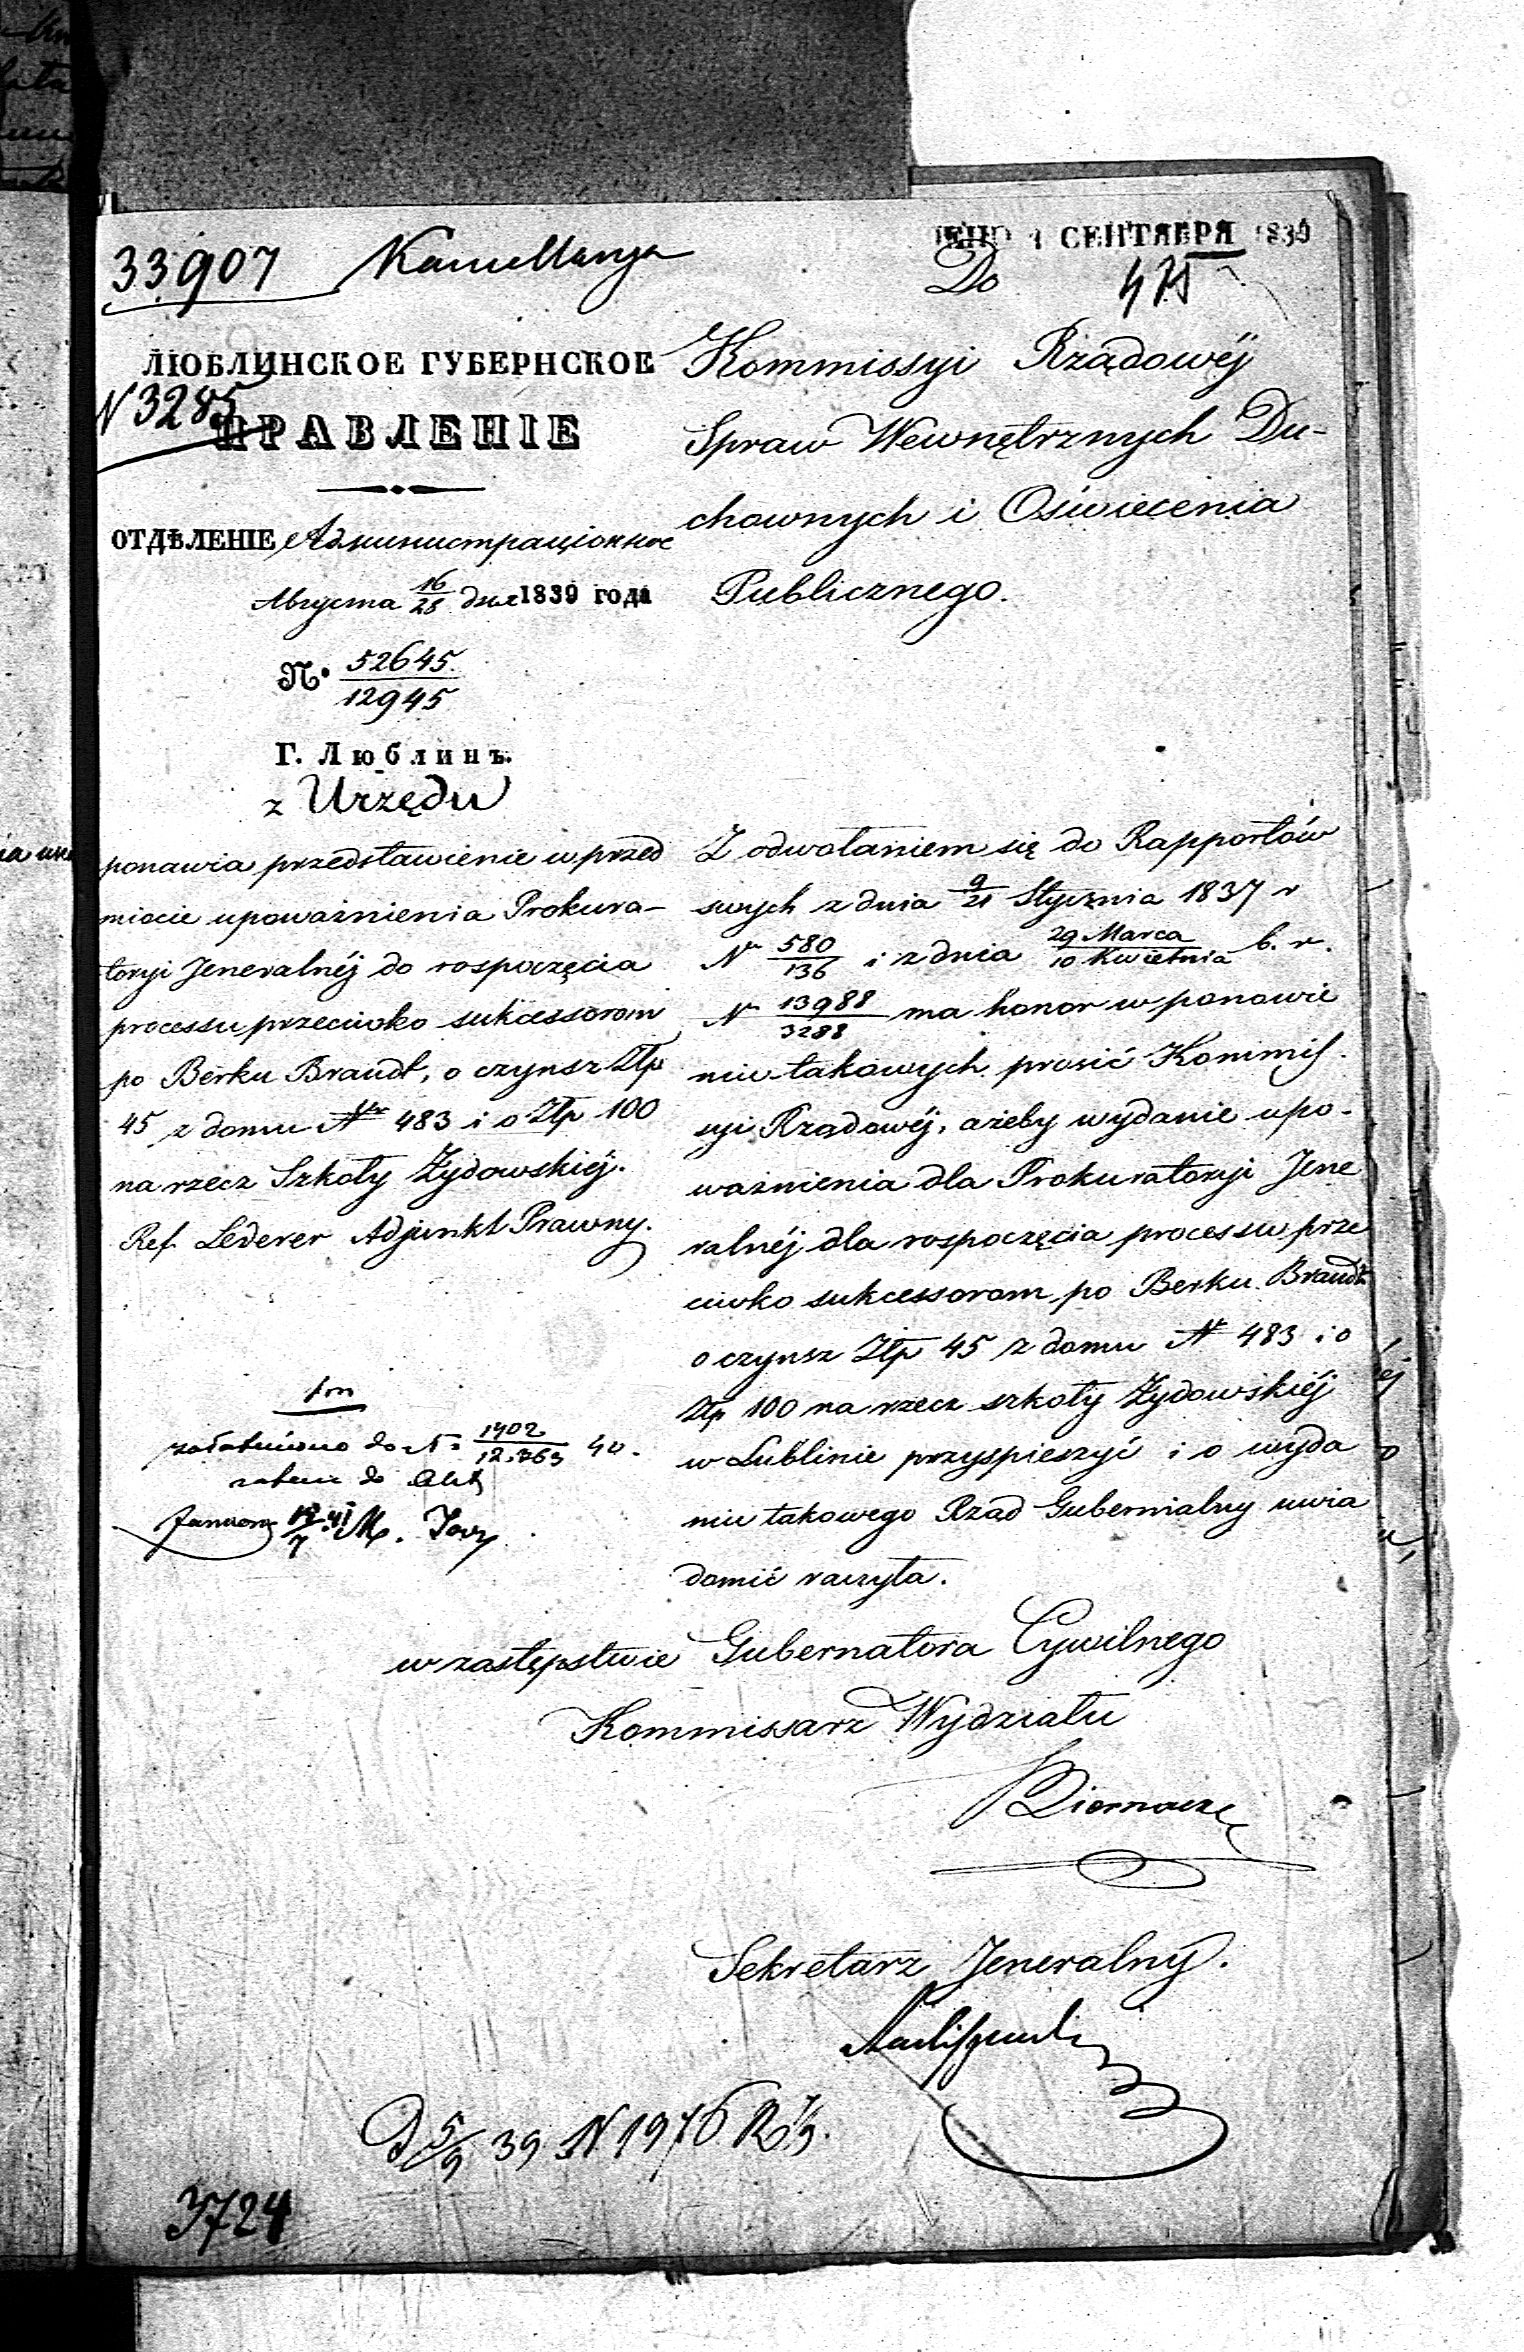 33907
1 СЕНТЯБРЯ 1839
475
ЛЮБЛИНСКОЕ ГУБЕРНСКОЕ
N 3285
ПРАВЛЕНІЕ
ОТДѢЛЕНІЕ Администраціонное
Августа 16/28 дня 1839 года
№ 52645/12945
Г. Люблинъ.
z Urzędu
ponawia przedstawienie w przed
miocie upoważnienia Prokura-
toryi Jeneralnéj do rospoczęcia
processu przeciwko sukcessorom
po Berku Brandt, o czynsz Złp
45 z domu Nr 483 i o Złp 100
na rzecz Szkoły Żydowskiéj.
Ref. Lederer Adjunkt Prawny.
załatwiono do N 1402/12.763 40.
Do
Kommissyi Rządowéj
Spraw Wewnętrznych Du-
chownych i Oświecenia
Publicznego.
Z odwołaniem się do Rapportów
swych z dnia 9/21 Stycznia 1837 r
Nr 580/136 i z dnia 29 Marca/10 Kwietnia b. r.
Nr 13988/3288 ma honor w ponowie
niu takowych prosić Kommis-
syi Rządowéj, ażeby wydanie upo-
ważnienia dla Prokuratoryi Jene
ralnéj dla rospoczęcia processu prze
ciwko sukcessorom po Berku Brandt
o czynsz Złp 45 z domu Nr 483 i o
Złp 100 na rzecz szkoły Żydowskiéj
w Lublinie przyspieszyć i o wyda
niu takowego Rząd Gubernialny uwia
domić raczyła.
w zastępstwie Gubernatora Cywilnego
Kommissarz Wydziału
Sekretarz Jeneralny.
D 5/9 39 N 1976
3724